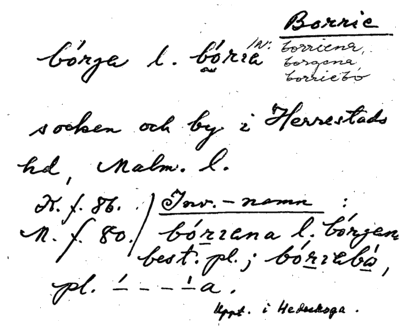 Borrie
bórga l. bória IN: borriena,
borgena,
borriebo
socken och by i Herrestads
hd, Malm. l.
K. f. 86. / Inv.-namn :
M. f. 80. / bóriana l. bórgan
best. pl.; bóriabå,
pl. ´ - - - ` a.
Uppt. i Hedeskoga.